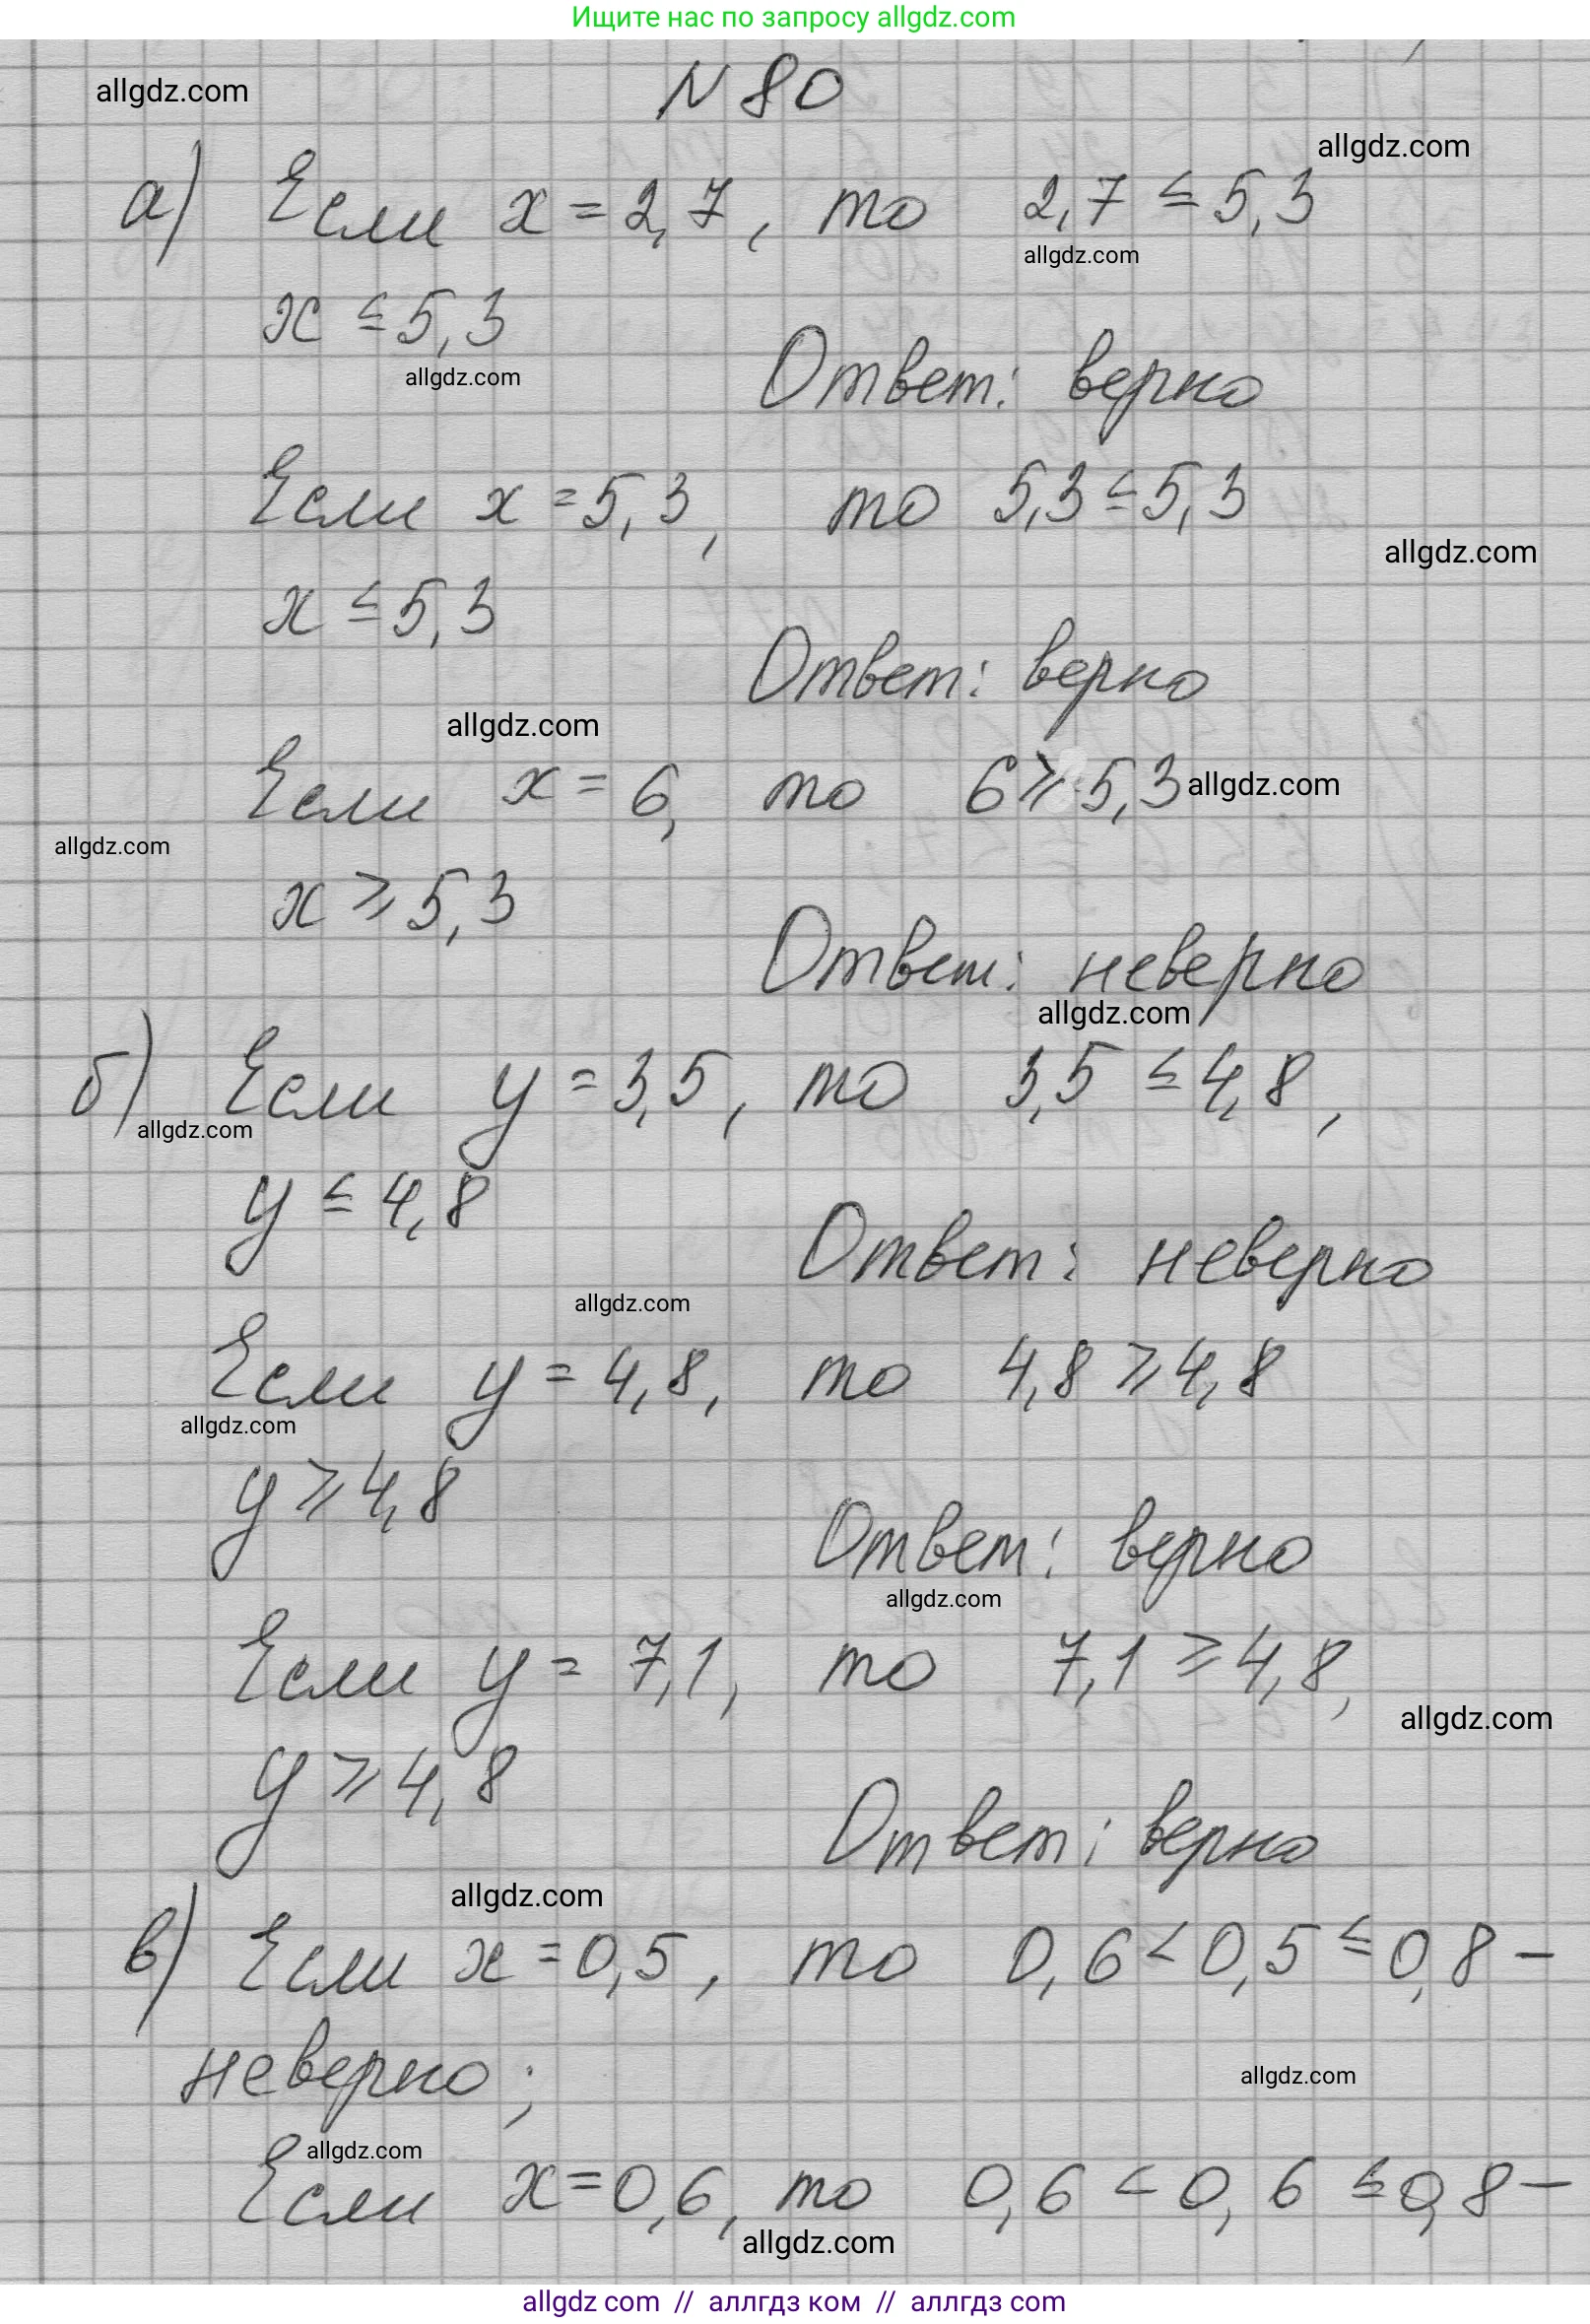 Ищите нас по запросу allgdz.com
N 80
allgdz.com
allgdz.com
а) Если x = 2,7, то 2,7 ≤ 5,3
allgdz.com
x ≤ 5,3
allgdz.com
Ответ: верно
Если x = 5,3, то 5,3 ≤ 5,3
allgdz.com
x ≤ 5,3
Ответ: верно
allgdz.com
Если x = 6, то 6 ⩾ 5,3
allgdz.com
allgdz.com
x ⩾ 5,3
Ответ: неверно
allgdz.com
б) Если y = 3,5, то 3,5 ≤ 4,8,
allgdz.com
y ≤ 4,8
Ответ: неверно
allgdz.com
Если y = 4,8, то 4,8 ⩾ 4,8
allgdz.com
y ⩾ 4,8
Ответ: верно
allgdz.com
Если y = 7,1, то 7,1 ⩾ 4,8,
allgdz.com
y ⩾ 4,8
Ответ: верно
allgdz.com
в) Если x = 0,5, то 0,6 < 0,5 ≤ 0,8 –
неверно;
allgdz.com
allgdz.com
Если x = 0,6, то 0,6 < 0,6 ≤ 0,8 –
allgdz.com
allgdz com // аллгдз ком // аллгдз com